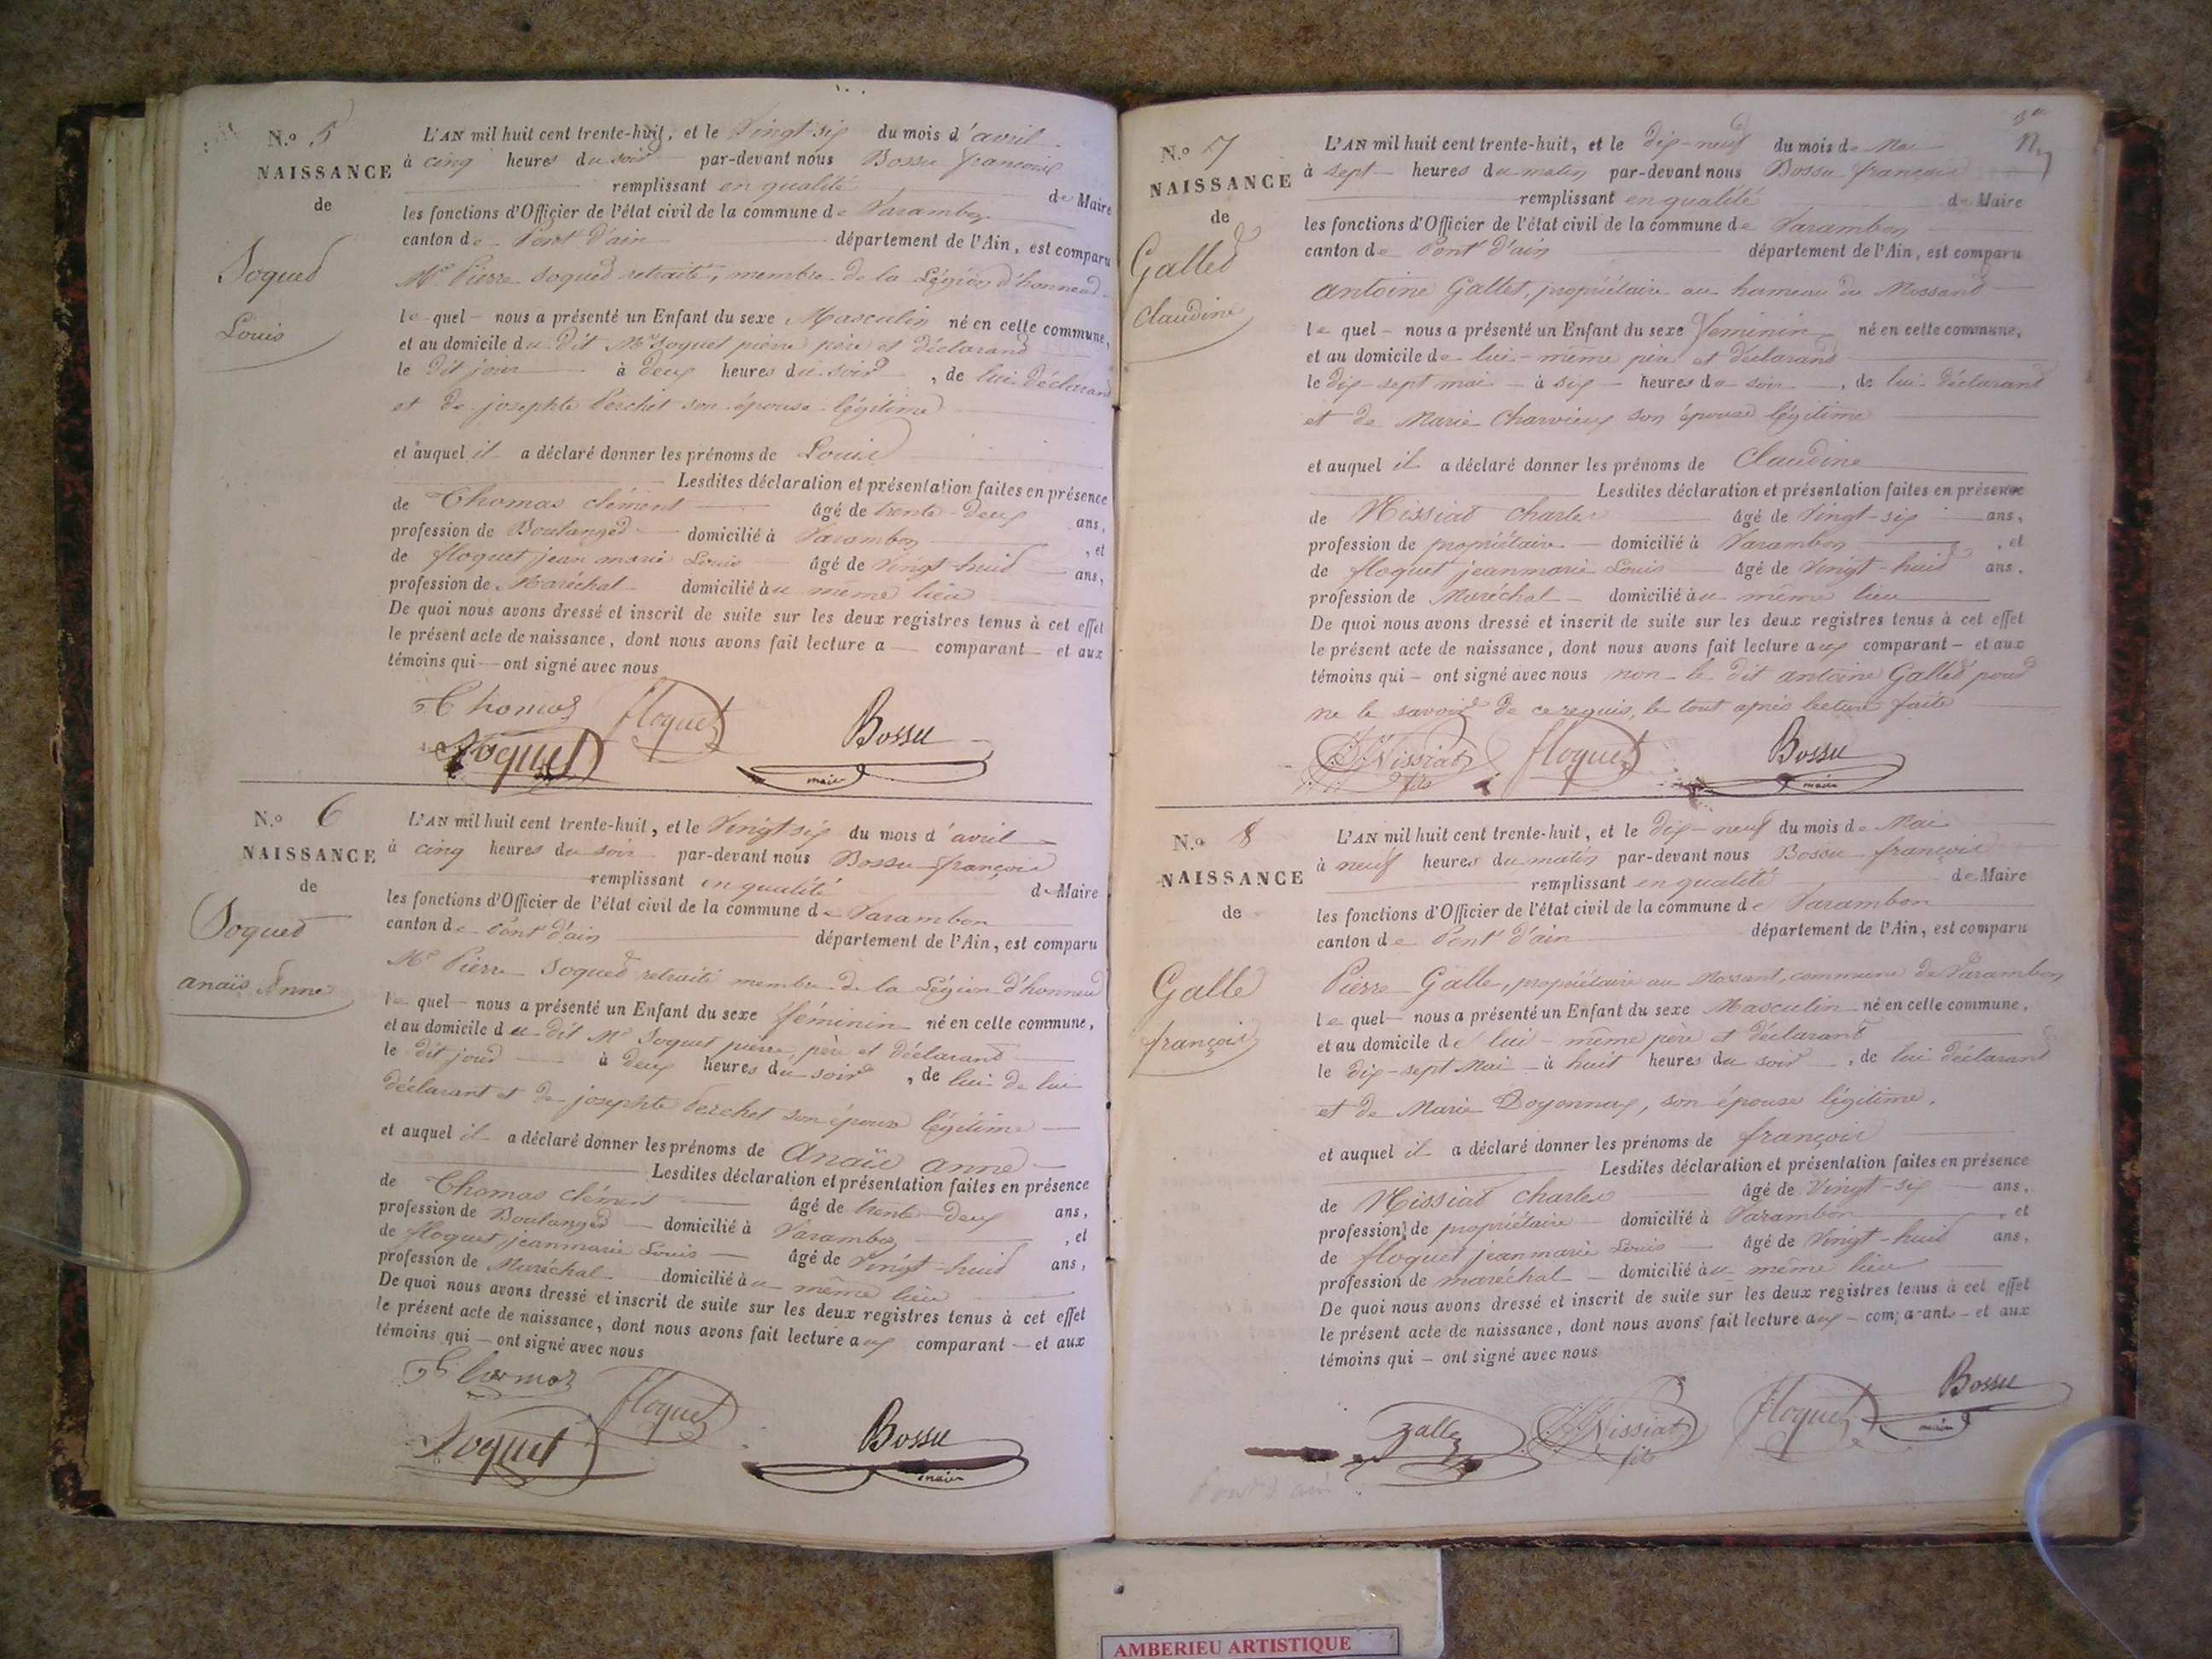 N.o 5
NAISSANCE
de
Soquet
Louis
L'AN mil huit cent trente-huit, et le Vingt-six du mois d'avril
à cinq heures du soir par-devant nous Bossu françois
remplissant en qualité de Maire
les fonctions d'Officier de l'état civil de la commune de Varambon
canton de Pont d'ain département de l'Ain, est comparu
Mr Pierre Soquet retraité, membre de la Légion d'honneur
lequel nous a présenté un Enfant du sexe Masculin né en cette commune,
et au domicile du dit Mr Soquet pierre père et déclarant
le dit jour à deux heures du soir, de lui déclarant
et de josephte Perchet son épouse légitime
et auquel il a déclaré donner les prénoms de Louis
Lesdites déclaration et présentation faites en présence
de Thomas clément âgé de trente-deux ans,
profession de Boulanger domicilié à Varambon, et
de floquet jean marie Louis âgé de Vingt-huit ans,
profession de Maréchal domicilié au même lieu
De quoi nous avons dressé et inscrit de suite sur les deux registres tenus à cet effet
le présent acte de naissance, dont nous avons fait lecture a comparant et aux
témoins qui ont signé avec nous
Thomas floquet
Soquet Bossu
maire
N.o 6
NAISSANCE
de
Soquet
anaïs Anne
L'AN mil huit cent trente-huit, et le Vingt six du mois d'avril
à cinq heures du soir par-devant nous Bossu françois
remplissant en qualité de Maire
les fonctions d'Officier de l'état civil de la commune de Varambon
canton de Pont d'ain département de l'Ain, est comparu
Mr Pierre Soquet retraité membre de la Légion d'honneur
lequel nous a présenté un Enfant du sexe féminin né en cette commune,
et au domicile du dit Mr Soquet pierre, père et déclarant
le dit jour à deux heures du soir, de lui de lui
déclarant et de josephte Perchet son épouse légitime
et auquel il a déclaré donner les prénoms de Anaïs anne
Lesdites déclaration et présentation faites en présence
de Thomas clément âgé de trente-deux ans,
profession de Boulanger domicilié à Varambon, et
de floquet jeanmarie Louis âgé de Vingt-huit ans,
profession de Maréchal domicilié au même lieu
De quoi nous avons dressé et inscrit de suite sur les deux registres tenus à cet effet
le présent acte de naissance, dont nous avons fait lecture aux comparant et aux
témoins qui ont signé avec nous
Thomas floquet
Soquet Bossu
maire
N.o 7
NAISSANCE
de
Gallet
Claudine
L'AN mil huit cent trente-huit, et le dix-neuf du mois de Mai
à sept heures du matin par-devant nous Bossu françois
remplissant en qualité de Maire
les fonctions d'Officier de l'état civil de la commune de Varambon
canton de Pont d'ain département de l'Ain, est comparu
antoine Gallet, propriétaire au hameau du Mossant
lequel nous a présenté un Enfant du sexe féminin né en cette commune,
et au domicile de lui-même père et déclarant
le dix-sept mai à six heures du soir, de lui déclarant
et de Marie Charvieux son épouse légitime
et auquel il a déclaré donner les prénoms de Claudine
Lesdites déclaration et présentation faites en présence
de Nissiat charles âgé de Vingt-six ans,
profession de propriétaire domicilié à Varambon, et
de floquet jeanmarie Louis âgé de Vingt-huit ans.
profession de Maréchal domicilié au même lieu
De quoi nous avons dressé et inscrit de suite sur les deux registres tenus à cet effet
le présent acte de naissance, dont nous avons fait lecture aux comparant et aux
témoins qui ont signé avec nous non le dit antoine Gallet pour
ne le savoir de ce requis, le tout après lecture faite
Nissiat fils floquet Bossu
maire
N.o 8
NAISSANCE
de
Galle
françois
L'AN mil huit cent trente-huit, et le dix-neuf du mois de Mai
à neuf heures du matin par-devant nous Bossu françois
remplissant en qualité de Maire
les fonctions d'Officier de l'état civil de la commune de Varambon
canton de Pont d'ain département de l'Ain, est comparu
Pierre Galle, propriétaire au Mossant, commune de Varambon
lequel nous a présenté un Enfant du sexe Masculin né en cette commune,
et au domicile de lui-même père et déclarant
le dix-sept Mai à huit heures du soir, de lui déclarant
et de Marie Doyonnax, son épouse légitime,
et auquel il a déclaré donner les prénoms de françois
Lesdites déclaration et présentation faites en présence
de Nissiat charles âgé de Vingt-six ans,
profession de propriétaire domicilié à Varambon, et
de floquet jeanmarie Louis âgé de Vingt-huit ans,
profession de maréchal domicilié au même lieu
De quoi nous avons dressé et inscrit de suite sur les deux registres tenus à cet effet
le présent acte de naissance, dont nous avons fait lecture aux comparants et aux
témoins qui ont signé avec nous
galle Nissiat fils floquet Bossu
maire
AMBERIEU ARTISTIQUE